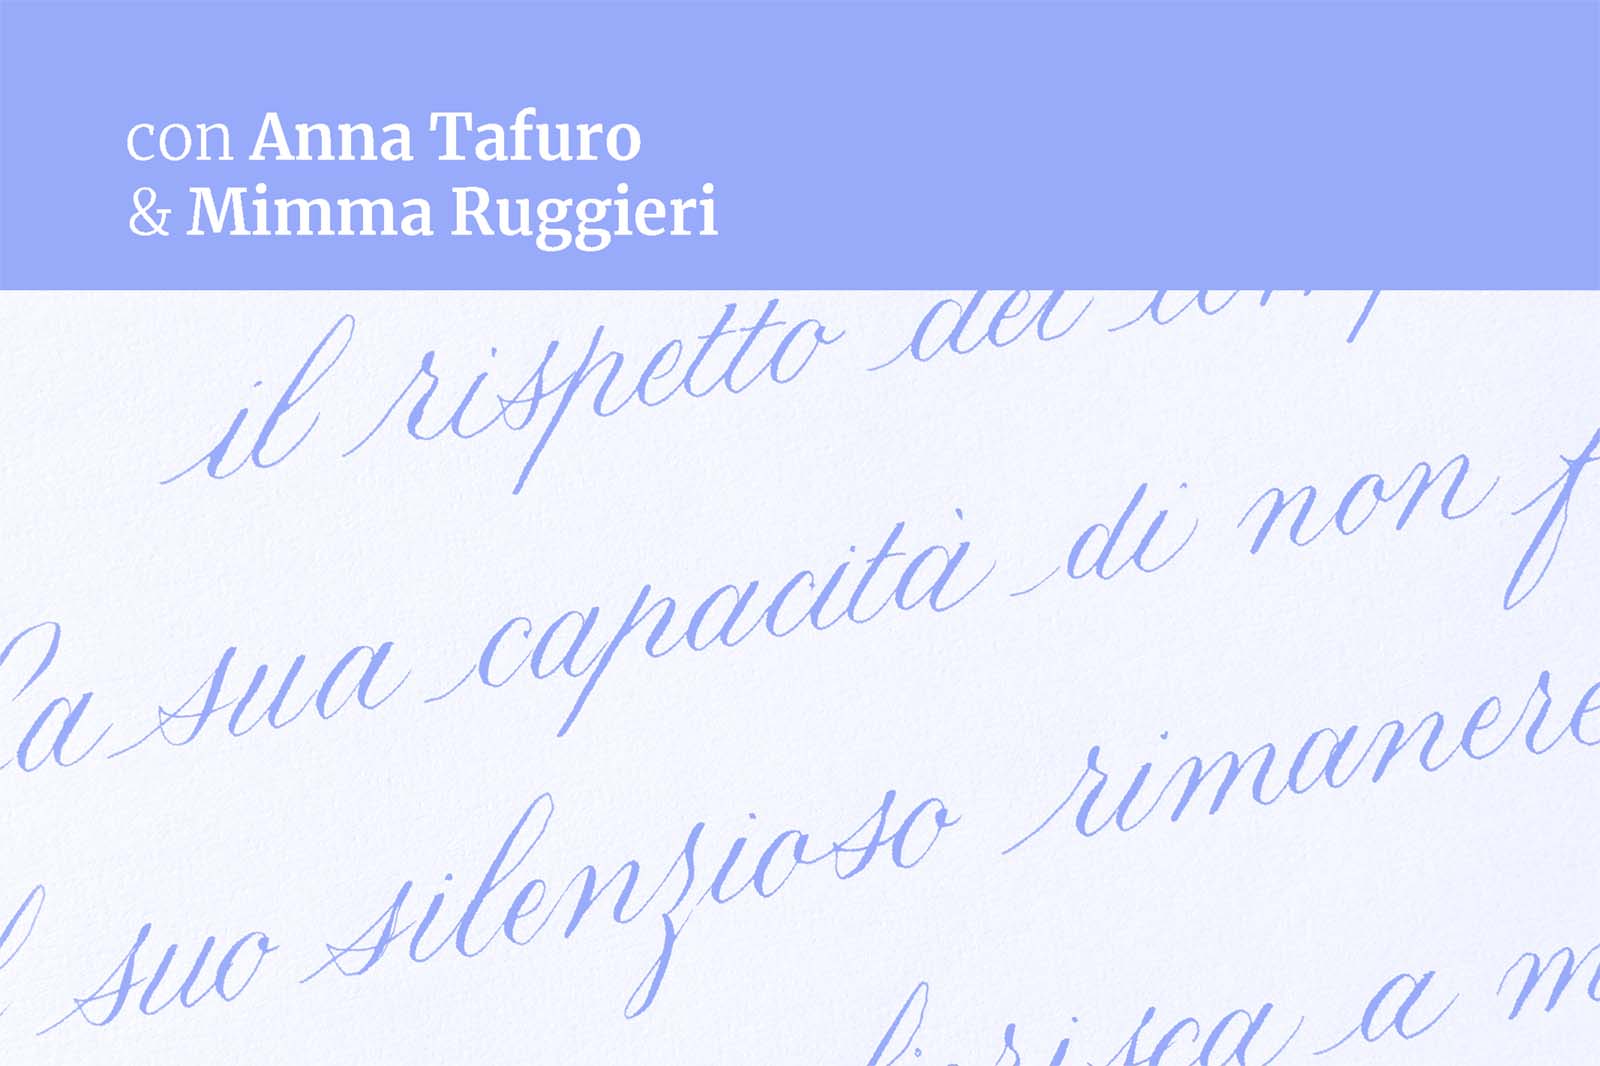 con Anna Tafuro
& Mimma Ruggieri
il rispetto dei
sua capacità di non
suo silenzioso rimanere
a